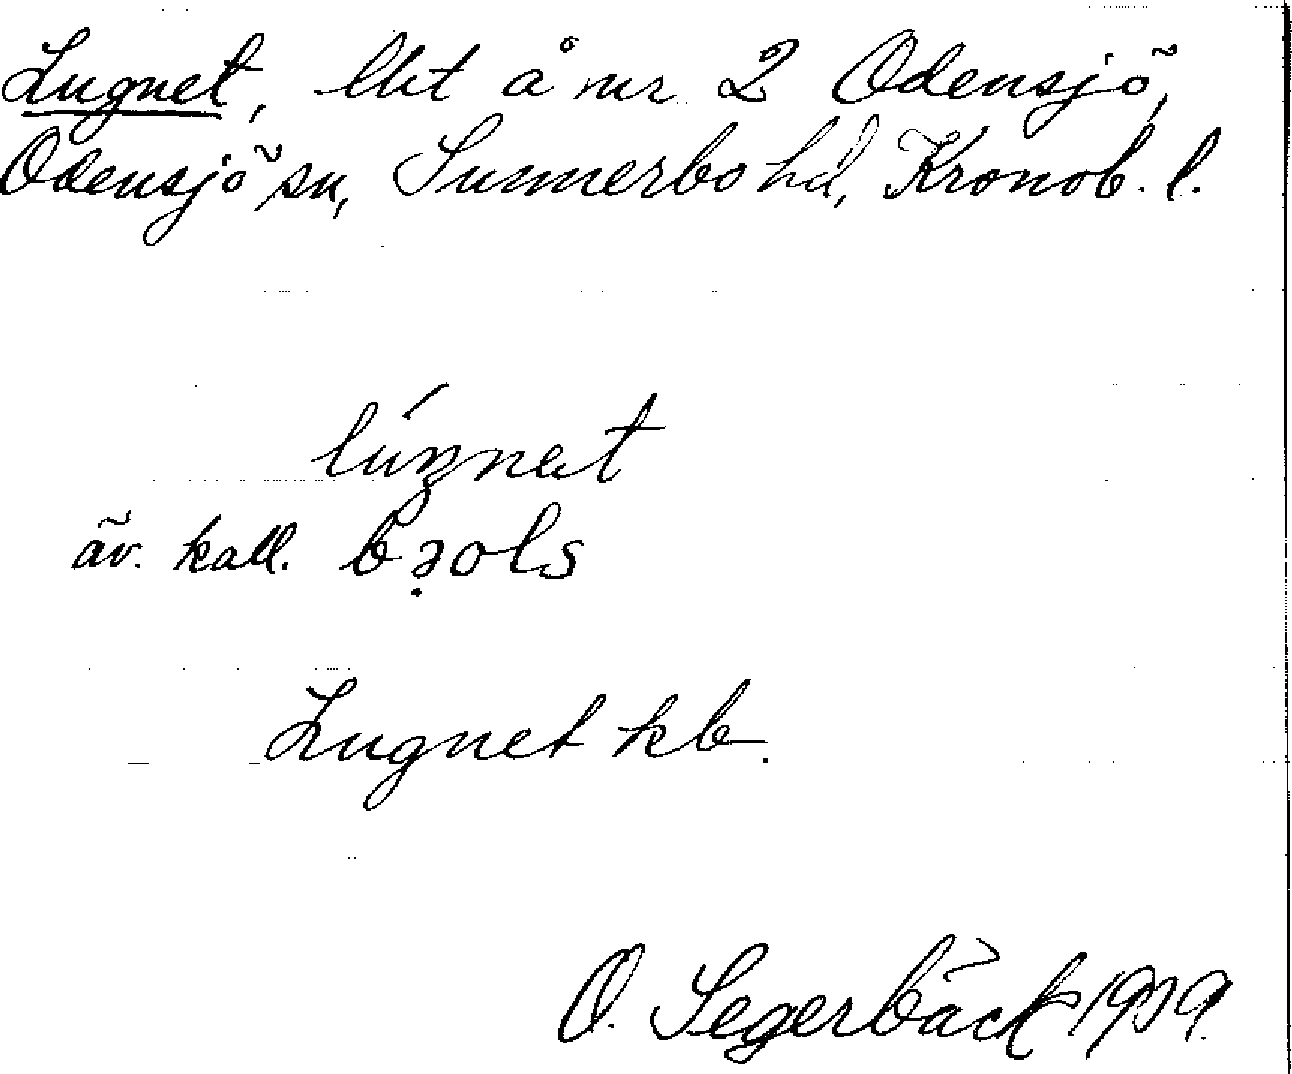 Lugnet, lht å nr 2 Odensjö,
Odensjö sn, Sunnerbo hd, Kronob. l.
lúŋnət
äv. kall.
Lugnet kb.
O. Segerbäck 1919.